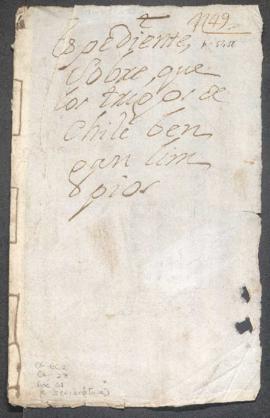 1749
Expediente,
Sobre que
los trigos de
Chile ben
gan lim
pios